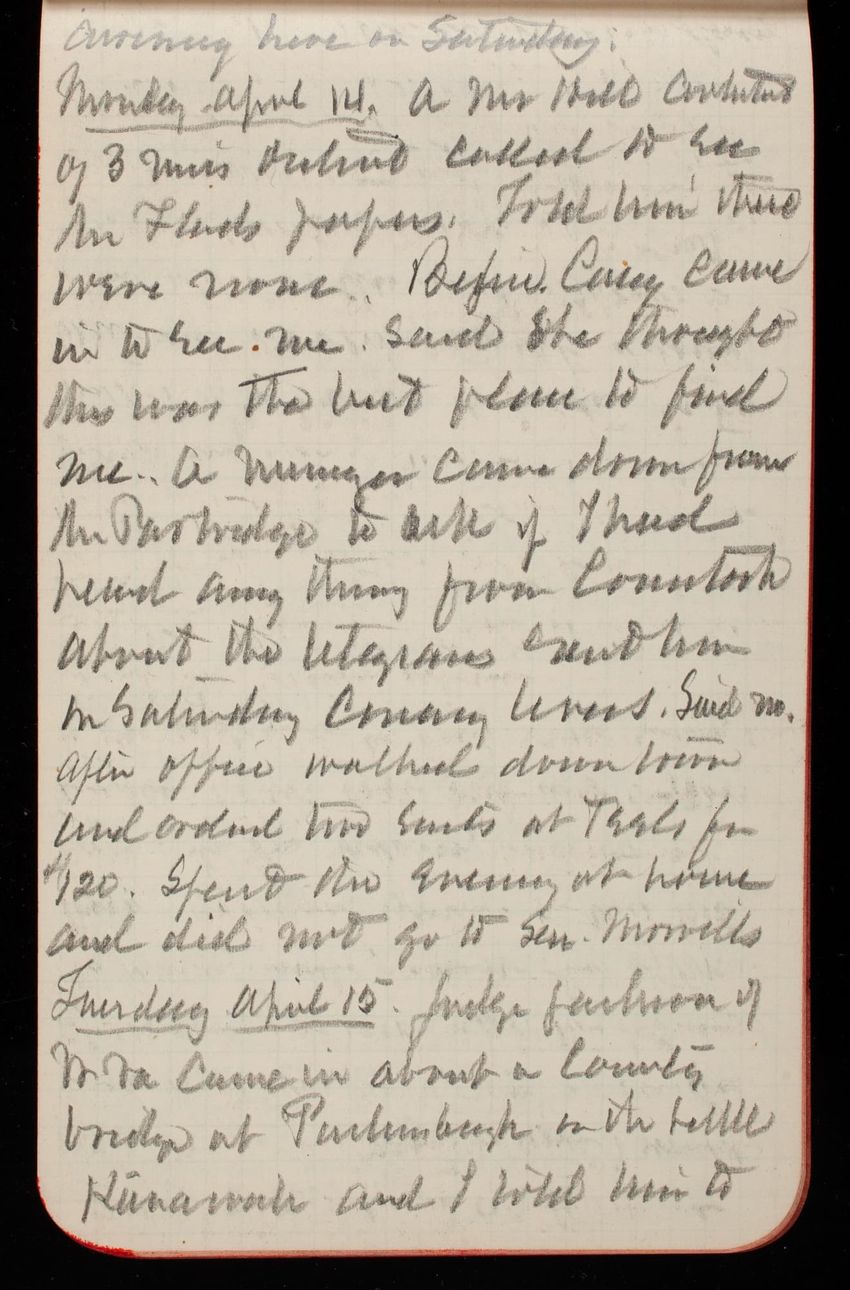 arriving here on Saturday.
Monday April 14. A Mr Hill
of 3 called to see
the papers. Told him there
were none. Before. Casey came
in to see me. Said she thought
this was the best place to find
me. A messenger came down from
the Partridge to ask if I had
heard any thing from Comstock
about the telegrams sent him
on Saturday. Said no.
After office walked down town
and ordered two seats at for
$1.20. Spent the evening at home
and did not go to Sen. Morrills
Tuesday April 15. Judge Jackson of
W Va came in about a County
bridge at Parkersburgh on the little
Kanawah and I told him to